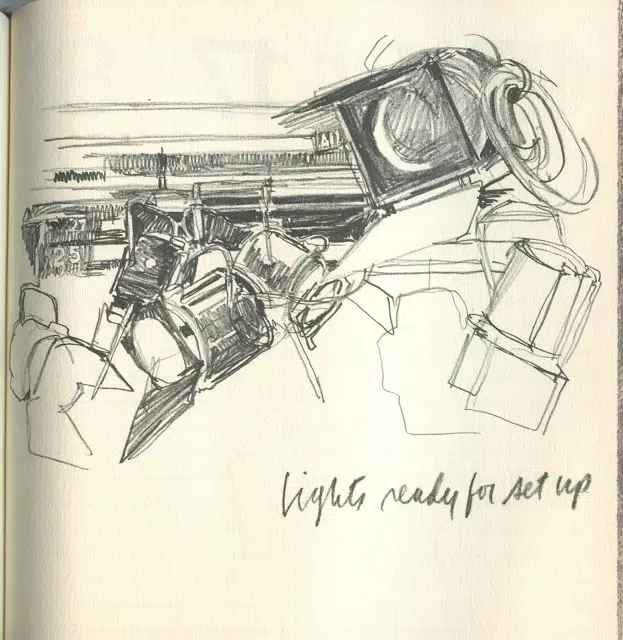 23
Lights ready for set up